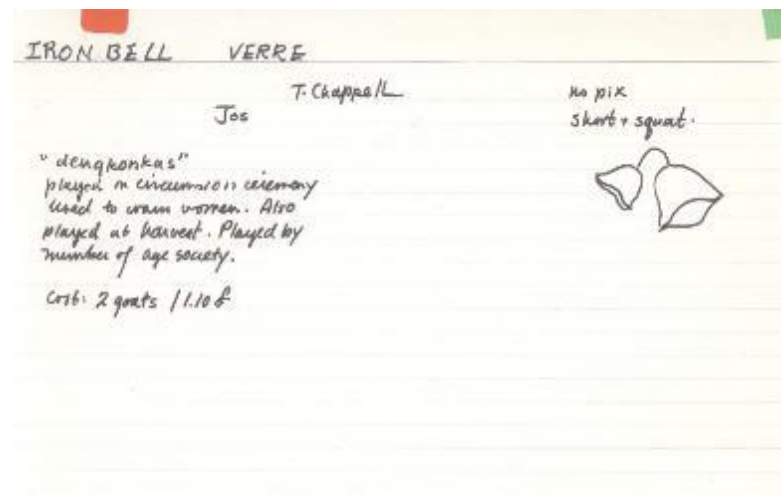 IRON BELL VERRE
T. Chappell
Jos
no pix
short + squat.
"dengkonkas"
played in circumsion ceremony
used to warn women. Also
played at harvest. Played by
member of age society.
Cost: 2 goats / 1.10 £